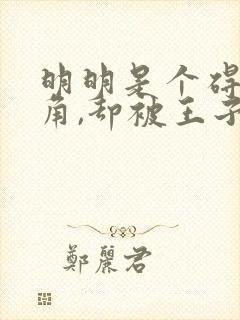 明明是个碍
角,却被王子
鄭麗君